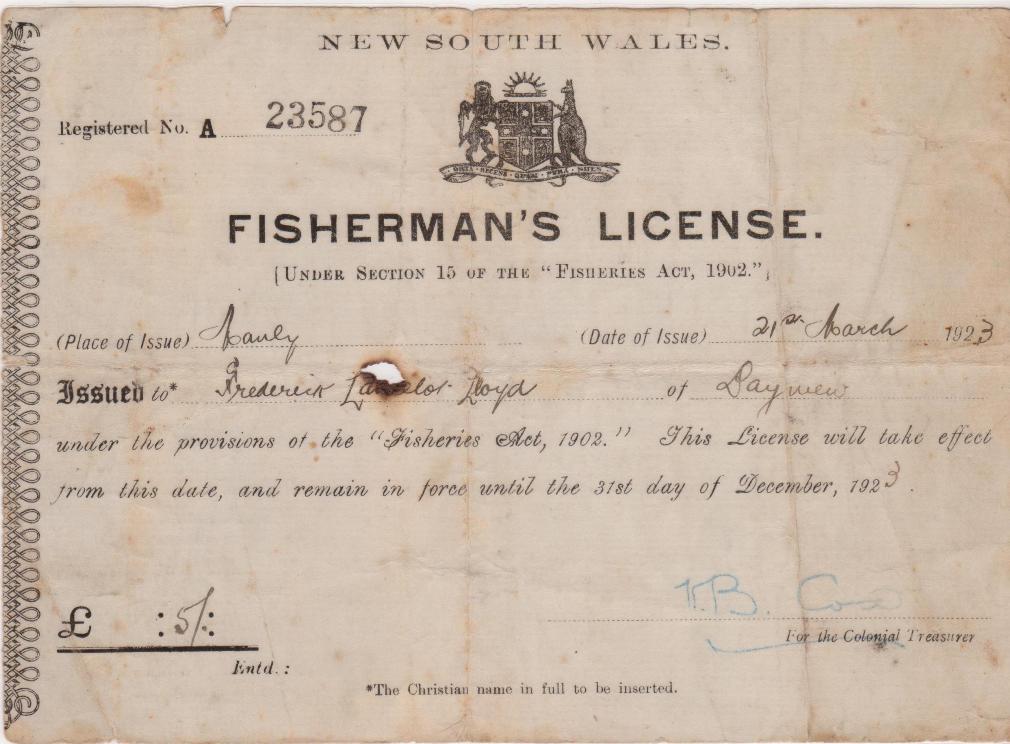 NEW SOUTH WALES.
Registered No. A 23587
ORTA · RECENS · QUAM · PURA · NITES
FISHERMAN'S LICENSE.
[UNDER SECTION 15 OF THE "FISHERIES ACT, 1902."]
(Place of Issue) Manly (Date of Issue) 21st March 1923
Issued to* Frederick Lloyd of Bayview
under the provisions of the "Fisheries Act, 1902." This License will take effect
from this date, and remain in force until the 31st day of December, 1923.
£ : 5/ :
B. Cox
For the Colonial Treasurer
Entd.:
*The Christian name in full to be inserted.